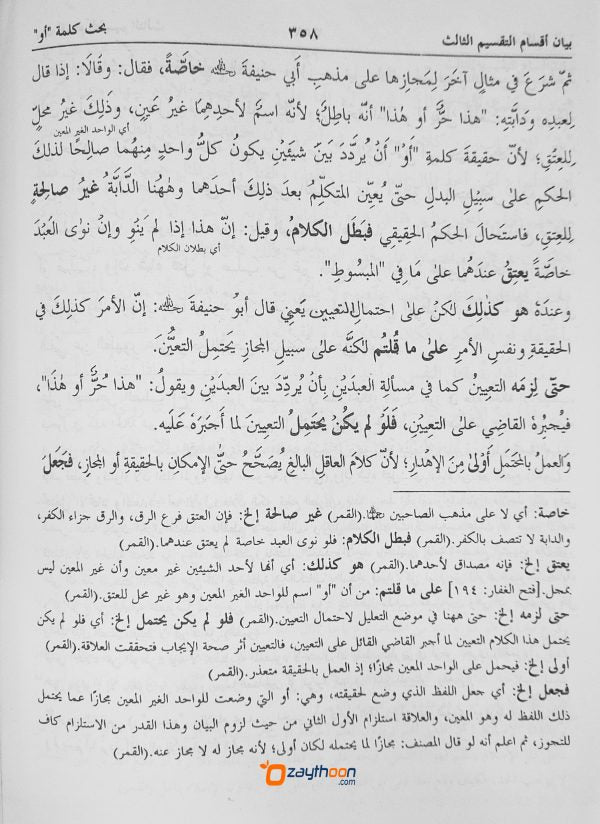 بيان أقسام التقسيم الثالث ٣٥٨ بحث كلمة "أو"
ثمّ شرَعَ في مثالٍ آخرَ لِمَجازِها على مذهبِ أبي حنيفةَ خاصّةً، فقال: وقالَا: إذا قال
لِعبدِه ودَابَّتِه: "هذا حُرٌّ أو هٰذا" أنّه باطِلٌ؛ لأنه اسمٌ لأحدِهِمَا غيرُ عَينٍ، وذَلك غيرُ محلٍّ
أي الواحد الغير المعين
لِلعِتقِ؛ لأنّ حقيقةَ كلمةِ "أو" أنْ يُردّدَ بَينَ شيئَينِ يكونُ كلُّ واحدٍ مِنهُما صالِحًا لذلك
الحكمِ على سبيلِ البدلِ حتّى يُعيّن المتكلّمُ بعدَ ذلك أحدَهما وهٰهُنا الدَّابَّةُ غيرُ صالحةٍ
لِلعِتقِ، فاستَحالَ الحكمُ الحقِيقي فبَطَل الكلامُ، وقيل: إنّ هذا إذا لم يَنوِ وإنْ نوى العَبْدَ
أي بطلان الكلام
خاصّةً يعتِقُ عندَهُما على مَا فِي "المبسُوطِ".
وعندَهُ هو كذلكَ لكنْ على احتمالِ التعيينِ يَعنِي قال أبو حنيفةَ: إنّ الأمرَ كذلك في
الحقيقةِ ونفسِ الأمرِ على ما قُلتُم لكنَّه على سبيلِ المجازِ يَحتمِلُ التعيُّنَ.
حتّى لزِمَه التعيينُ كما في مسألةِ العبدَيْنِ بأن يُردِّدَ بينَ العبدَيْنِ ويقولُ: "هذا حُرٌّ أو هٰذَا"،
فيُجبِرُه القاضي على التعيِيْنِ، فَلَوْ لم يكنْ يحتمِلُ التعيينَ لما أَجبَرَهُ عَلَيه.
والعملُ بالمُحتَمَلِ أَوْلى مِنَ الإهدارِ؛ لأنّ كلامَ العاقلِ البالغِ يُصَحَّحُ حتَّى الإمكانِ بالحقِيقةِ أو المجازِ، فجعلَ
خاصة: أي لا على مذهب الصاحبين.(القمر) غير صالحة إلخ: فإن العتق فرع الرق، والرق جزاء الكفر،
والدابة لا تتصف بالكفر.(القمر) فبطل الكلام: فلو نوى العبد خاصة لم يعتق عندهما.(القمر)
يعتق إلخ: فإنه مصداق لأحدهما.(القمر) هو كذلك: أي أنها لأحد الشيئين غير معين وأن غير المعين ليس
بمحل.[فتح الغفار: ١٩٤] على ما قلتم: من أن "أو" اسم للواحد الغير المعين وهو غير محل للعتق.(القمر)
حتى لزمه إلخ: حتى ههنا في موضع التعليل لاحتمال التعيين.(القمر) فلو لم يكن يحتمل إلخ: أي فلو لم يكن
يحتمل هذا الكلام التعيين لما أجبر القاضي القائل على التعيين، فالتعيين أثر صحة الإيجاب فتحققت العلاقة.(القمر)
أولى إلخ: فيحمل على الواحد المعين مجازًا؛ إذ العمل بالحقيقة متعذر.(القمر)
فجعل إلخ: أي جعل اللفظ الذي وضع لحقيقته، وهي: أو التي وضعت للواحد الغير المعين مجازًا عما يحتمل
ذلك اللفظ له وهو المعين، والعلاقة استلزام الأول الثاني من حيث لزوم البيان وهذا القدر من الاستلزام كاف
للتجوز، ثم اعلم أنه لو قال المصنف: مجازًا لما يحتمله لكان أولى؛ لأنه مجاز له لا مجاز عنه.(القمر)
zaythoon
.com